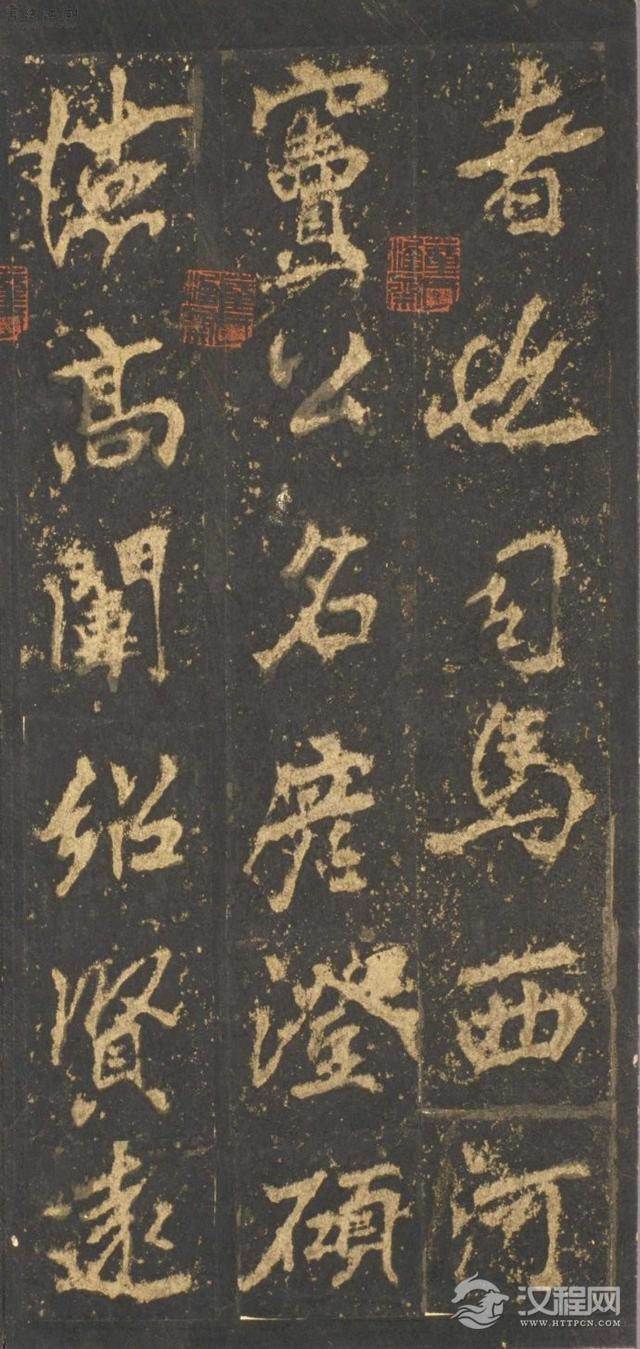 者也司馬西河
竇公名彦澄碩
德高闡紹賢遠
汉程网
WWW.HTTPCN.COM